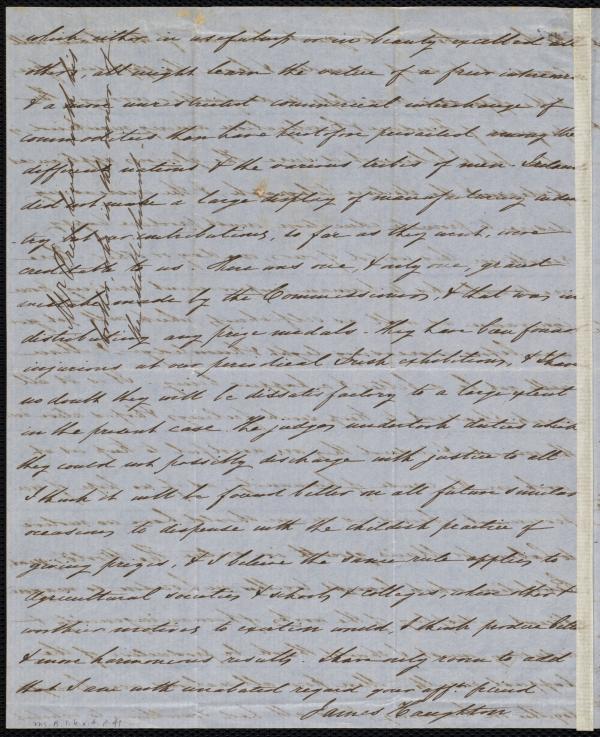 which either in usefulness or in beauty excelled all
others, all might learn the value of a freer intercourse
& a more unrestricted commercial interchange of
commodities than have heretofore prevailed among the
different nations & the various tribes of men. Ireland
did not make a large display of manufacturing indus
-try, but our contributions, so far as they went, were
creditable to us. There was one, & only one, great
mistake made by the Commissioners, & that was in
distributing any prize medals. They have been found
injurious at our periodical Irish exhibitions, & I have
no doubt they will be dissatisfactory to a large extent
in the present case. The judges undertook duties which
they could not possibly discharge with justice to all
I think it will be found better on all future similar
occasions to dispense with the childish practice of
giving prizes, & I believe the same rule applies to
Agricultural societies & schools & colleges, where other &
worthier motives to exertion would, I think produce better
& more harmonious results. I have only room to add
that I am with unabated regard your afft. friend
James Haughton